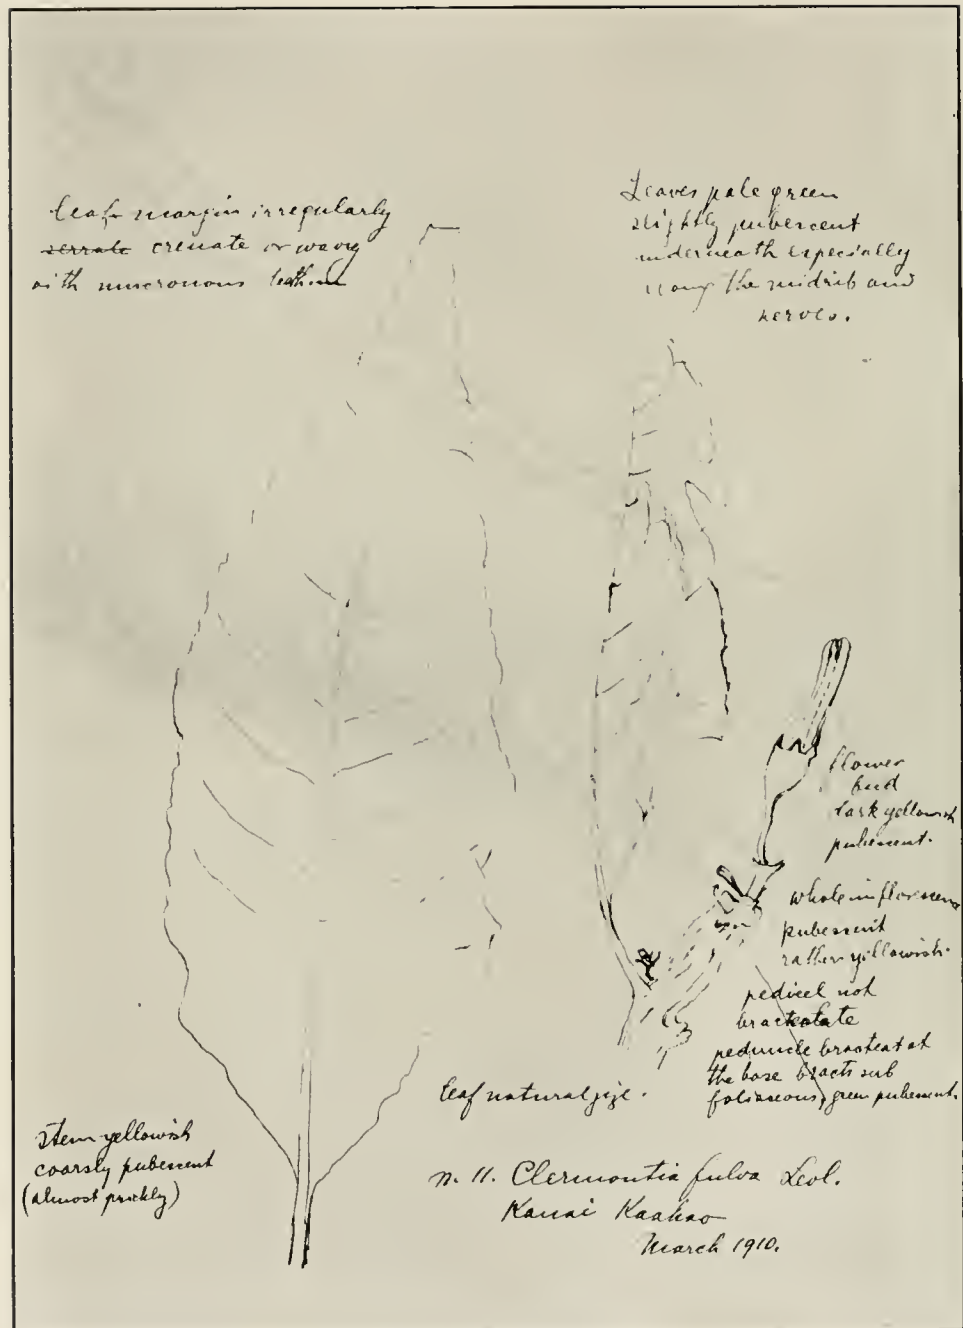 leaf margin irregularly
serrate crenate or wavy
with mucronous teeth
Leaves pale green
slightly pubescent
underneath especially
along the midrib and
nerves.
flower
bud
dark yellowish
pubescent.
whole inflorescence
pubescent
rather yellowish.
pedicel not
bracteolate
peduncle bracteat at
the base bracts sub
foliaceous, green pubescent.
leaf natural size.
Stem yellowish
coarsly pubescent
(almost prickly)
n. 11. Clermontia fulva Levl.
Kauai Kaahao
March 1910.